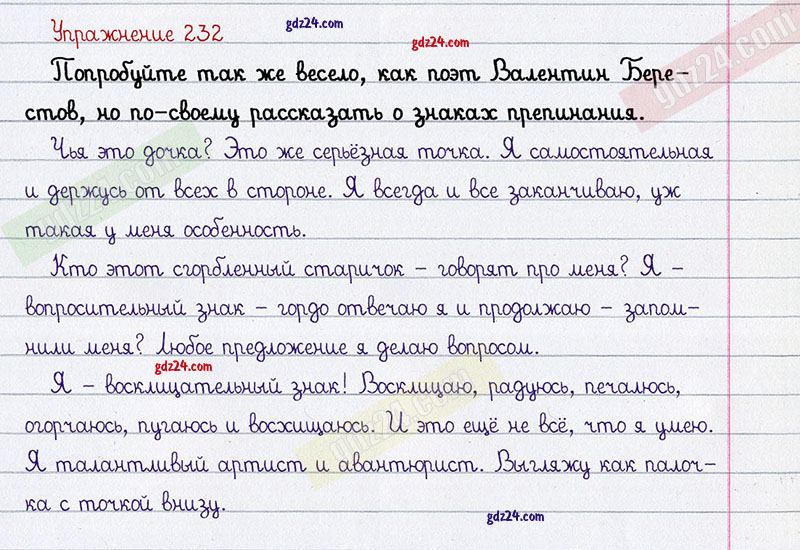 Упражнение 232
gdz24.com
gdz24.com
gdz24.com
Попробуйте так же весело, как поэт Валентин Бере-
стов, но по-своему рассказать о знаках препинания.
Чья это дочка? Это же серьёзная точка. Я самостоятельная
и держусь от всех в стороне. Я всегда и все заканчиваю, уж
gdz24.com
такая у меня особенность.
Кто этот сгорбленный старичок – говорят про меня? Я –
вопросительный знак – гордо отвечаю я и продолжаю – запом-
нили меня? Любое предложение я делаю вопросом.
gdz24.com
Я – восклицательный знак! Восклицаю, радуюсь, печалюсь,
огорчаюсь, пугаюсь и восхищаюсь. И это ещё не всё, что я умею.
gdz24.com
Я талантливый артист и авантюрист. Выгляжу как палоч-
ка с точкой внизу.
gdz24.com